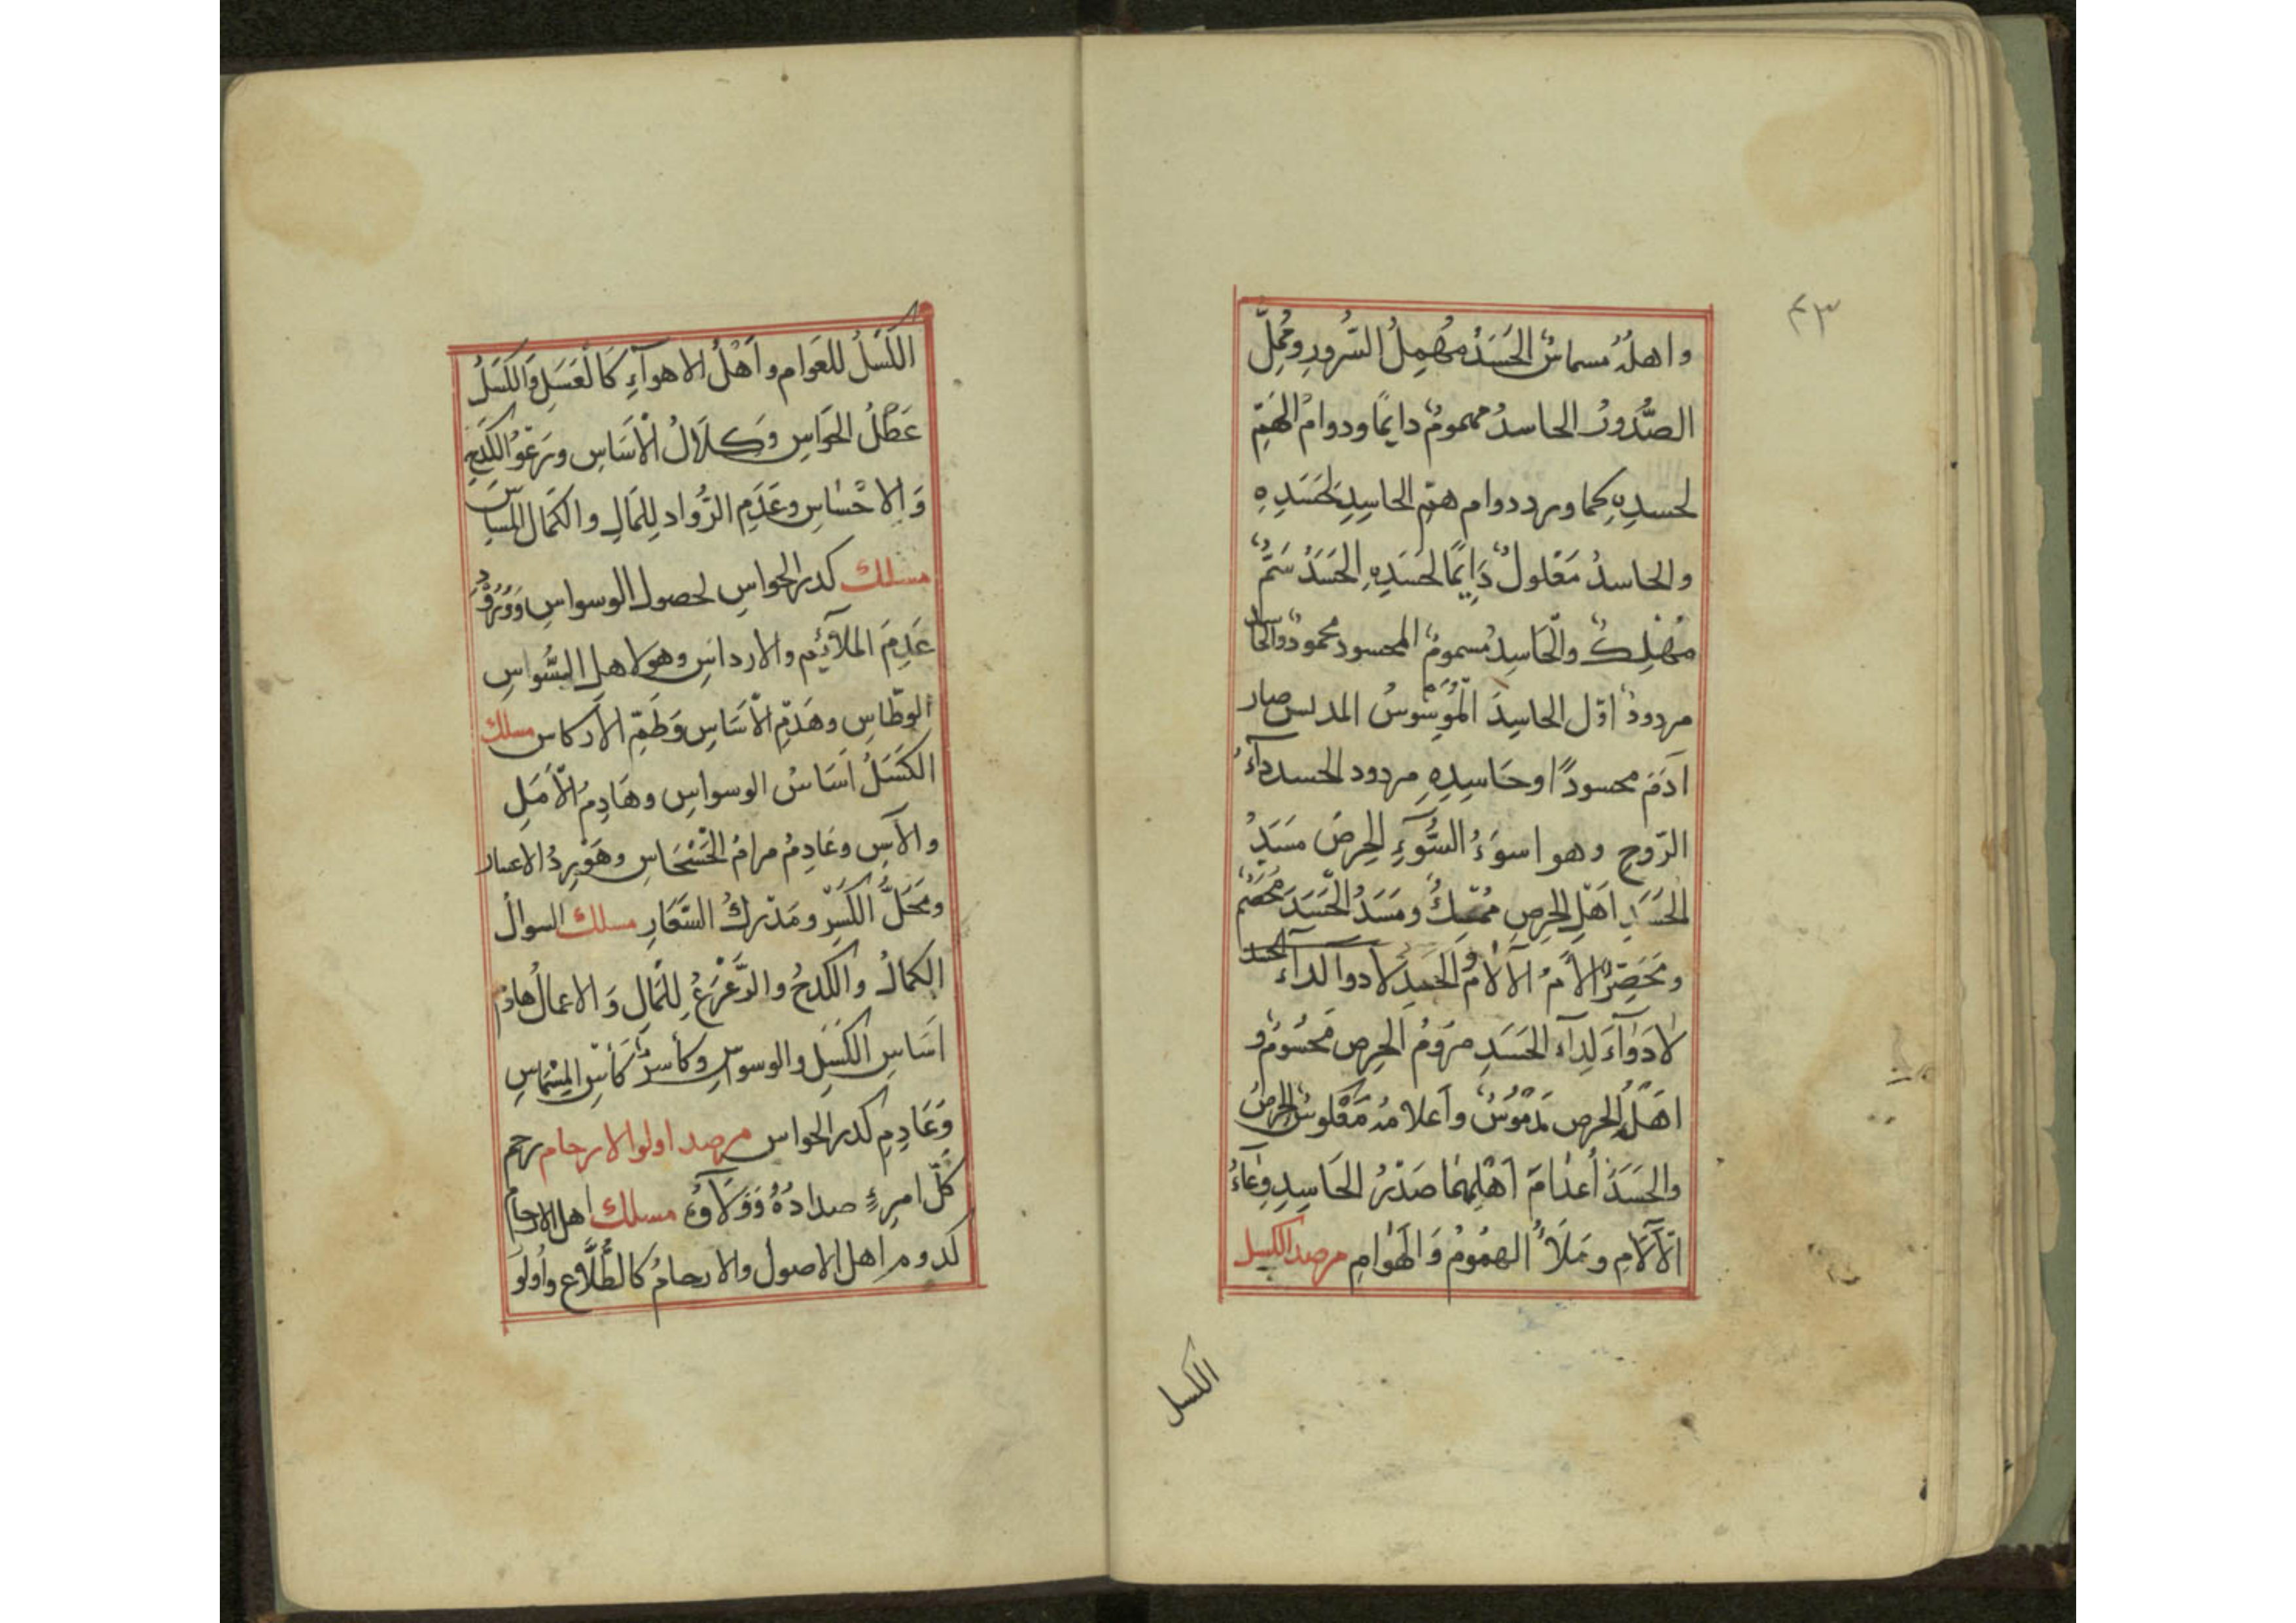 ٤٣
واهلُهُ مسماسٌ الحَسَدُ مُهْمِلُ السُّرورِ ومُمِلُّ
الصُّدُورِ الحاسدُ مهمومٌ دايمًا ودوامُ الهَمِّ
لحسدِهِ كما ورد دوام همِّ الحاسِدِ لحَسَدِهِ
والحاسدُ مَعْلولٌ دَايمًا لحَسَدِهِ الحَسَدُ سَمٌّ
مُهْلِكٌ والحَاسِدُ مسمومٌ المحسود محمودٌ والحاسد
مردودٌ اوّل الحاسِدِ المُوَسْوِسُ المدلس صار
آدَمَ محسودًا وحَاسِدِهِ مردود الحسد دآءُ
الرّوحِ وهو اسوَءُ السُّوءِ الحِرصُ مَسَدُ
الحَسَدِ اهلِ الحِرصِ ومَسَدُ الحَسَدَ
الآلامُ لا دوا لداء الحسد
لا دَوَآءَ لِدآء الحَسَدِ مَرُومُ الحِرصِ مَحْسُومٌ و
اهْلُ الحرصِ مَدْمُوسٌ وأعلامُهُ مَعْكوسٌ الحرصُ
والحَسَدُ أعدَامَ اهْلِهِمَا صَدْرُ الحَاسِدِ وِعَاءُ
الآلَامِ ومَلَأُ الهمُومُ وَالهَوَامِ مرصد الكسل
الكسل
الكَسَلُ للعَوَامِ وأَهْلُ الاهوآءِ كَالْعَسَلِ وَالكَسَلُ
عَطَلُ الحَوَاسِ وكَلَالُ الْأَسَاسِ الكَدْحِ
وَالاحْسَاسِ وعَدَمِ الرُّوادِ لِلمَالِ والكمَالِ
مسلك كدر الحواسِ لحصول الوسواسِ وَوُرُوْدِ
عَدَمِ الملآئِمِ والارداسِ وهو لاهلِ السُّواسِ
الوطّاسِ وهَدْمِ الأَسَاسِ وَطَمِّ الأركاسِ مسلك
الكَسَلُ اَسَاسُ الوسواسِ وهَادِمُ الأَمَلِ
والآسِ وعَادِمُ مرامُ الحَسْحَاسِ
ومَحَلُّ الكَسْرِ ومَدْرَكُ السَّعَارِ مسلك السوالُ
الكمالُ والكَدْحُ لِلمَالِ وَالاعمالُ هادمُ
اَسَاسِ الكَسَلِ والوسوسِ
وَعَادِمِ كدر الحواسِ مرصد اولوا الارحام رحم
كُلّ امرِءٍ مسلك اهل الارحام
اهل الاصول والارحامُ كالطُّلَّاعِ وأولو